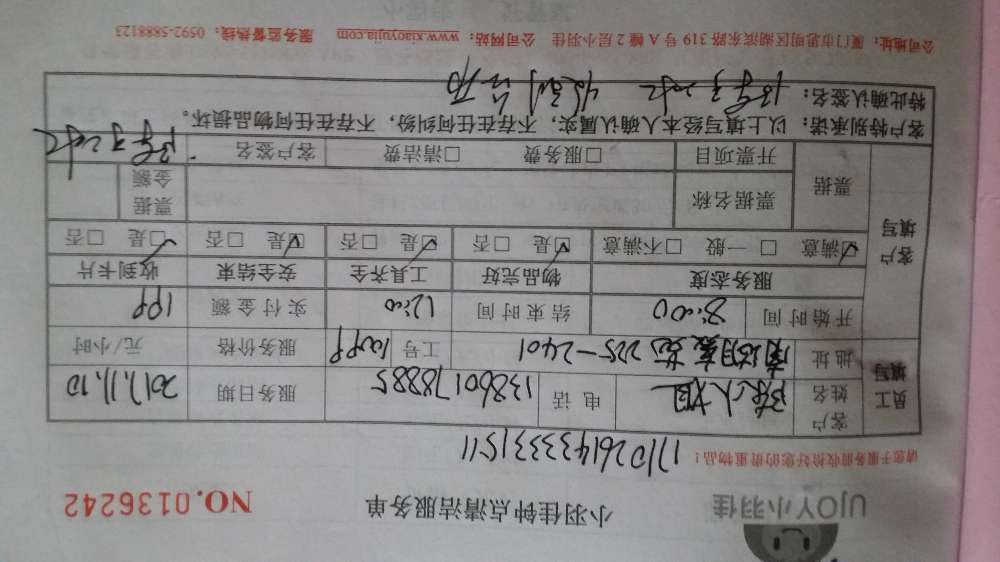 UJOY小羽佳 小羽佳钟点清洁服务单 NO.0136242
请您于服务前收拾好您的贵重物品！ 1710261433331511
员工填写 客户姓名 陈小姐 电话 13860178885 服务日期 2017.11.10
地址 225-2401 工号 服务价格 元/小时
开始时间 8:00 结束时间 12:00 实付金额 199
客户填写 服务态度 物品完好 工具齐全 安全结束 收到卡片
☑满意 □一般 □不满意 ☑是 □否 ☑是 □否 ☑是 □否 ☑是 □否
票据 票据名称 票据金额
开票项目 □服务费 □清洁费 客户签名：
客户特别承诺：以上填写经本人确认属实，不存在任何纠纷，不存在任何物品损坏。
特此确认签名：
公司地址：厦门市思明区湖滨东路 319 号 A 幢 2 层小羽佳 公司网站：www.xiaoyujia.com 服务监督热线：0592-5888123